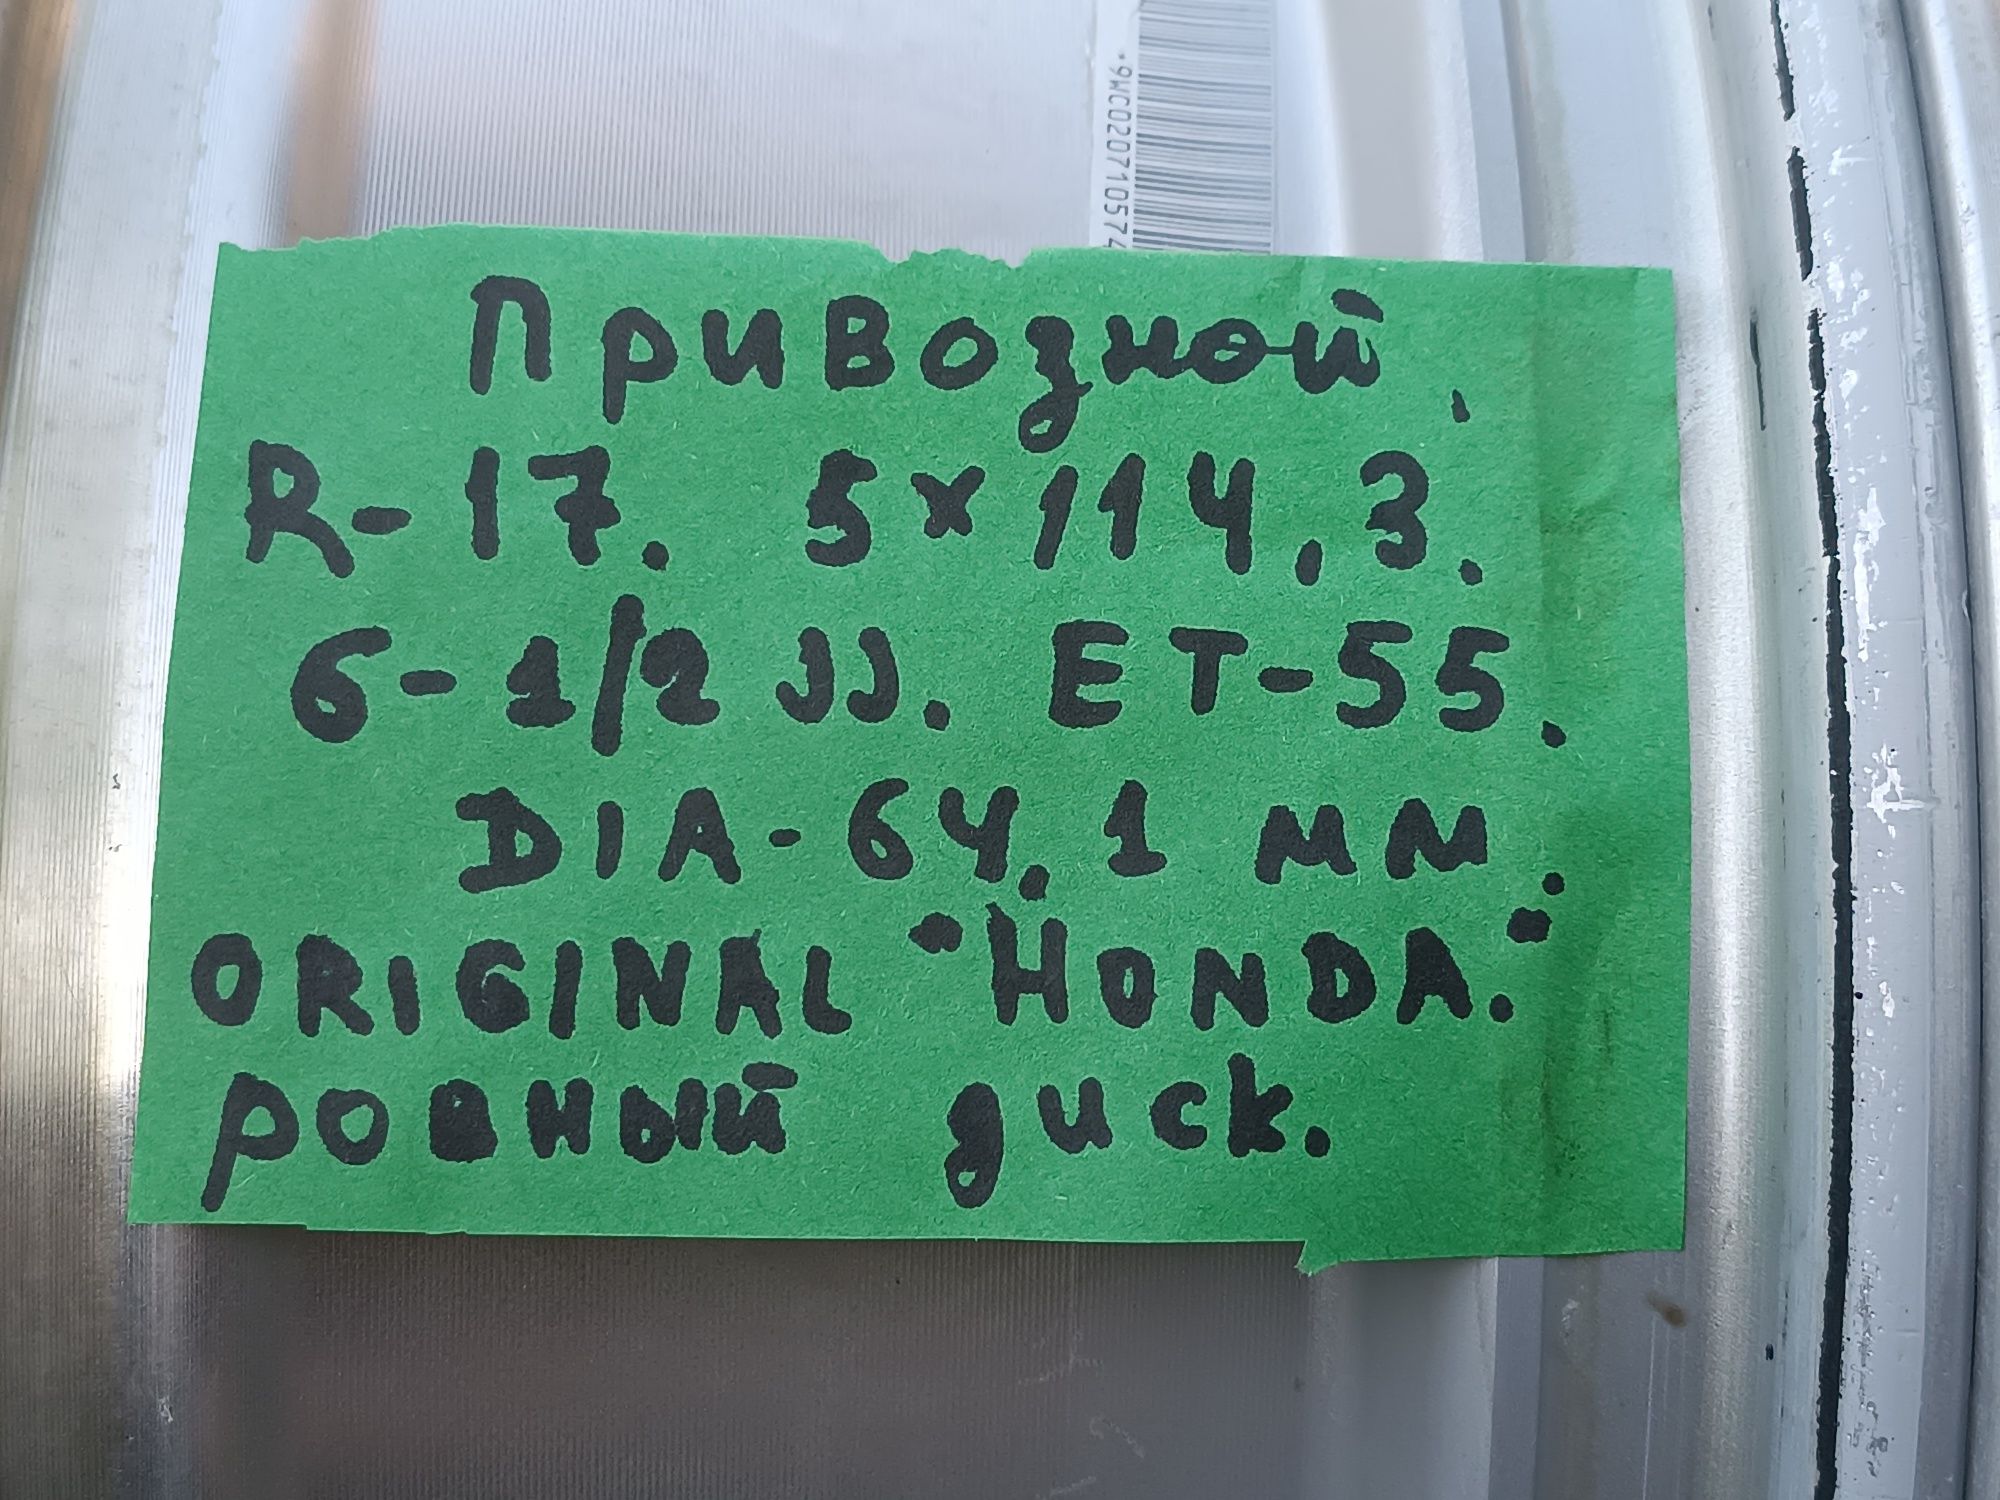 *9WC020710574
Привозной.
R-17. 5×114,3.
6-1/2 JJ. ET-55.
DIA-64.1 мм.
ORIGINAL "HONDA."
ровный диск.